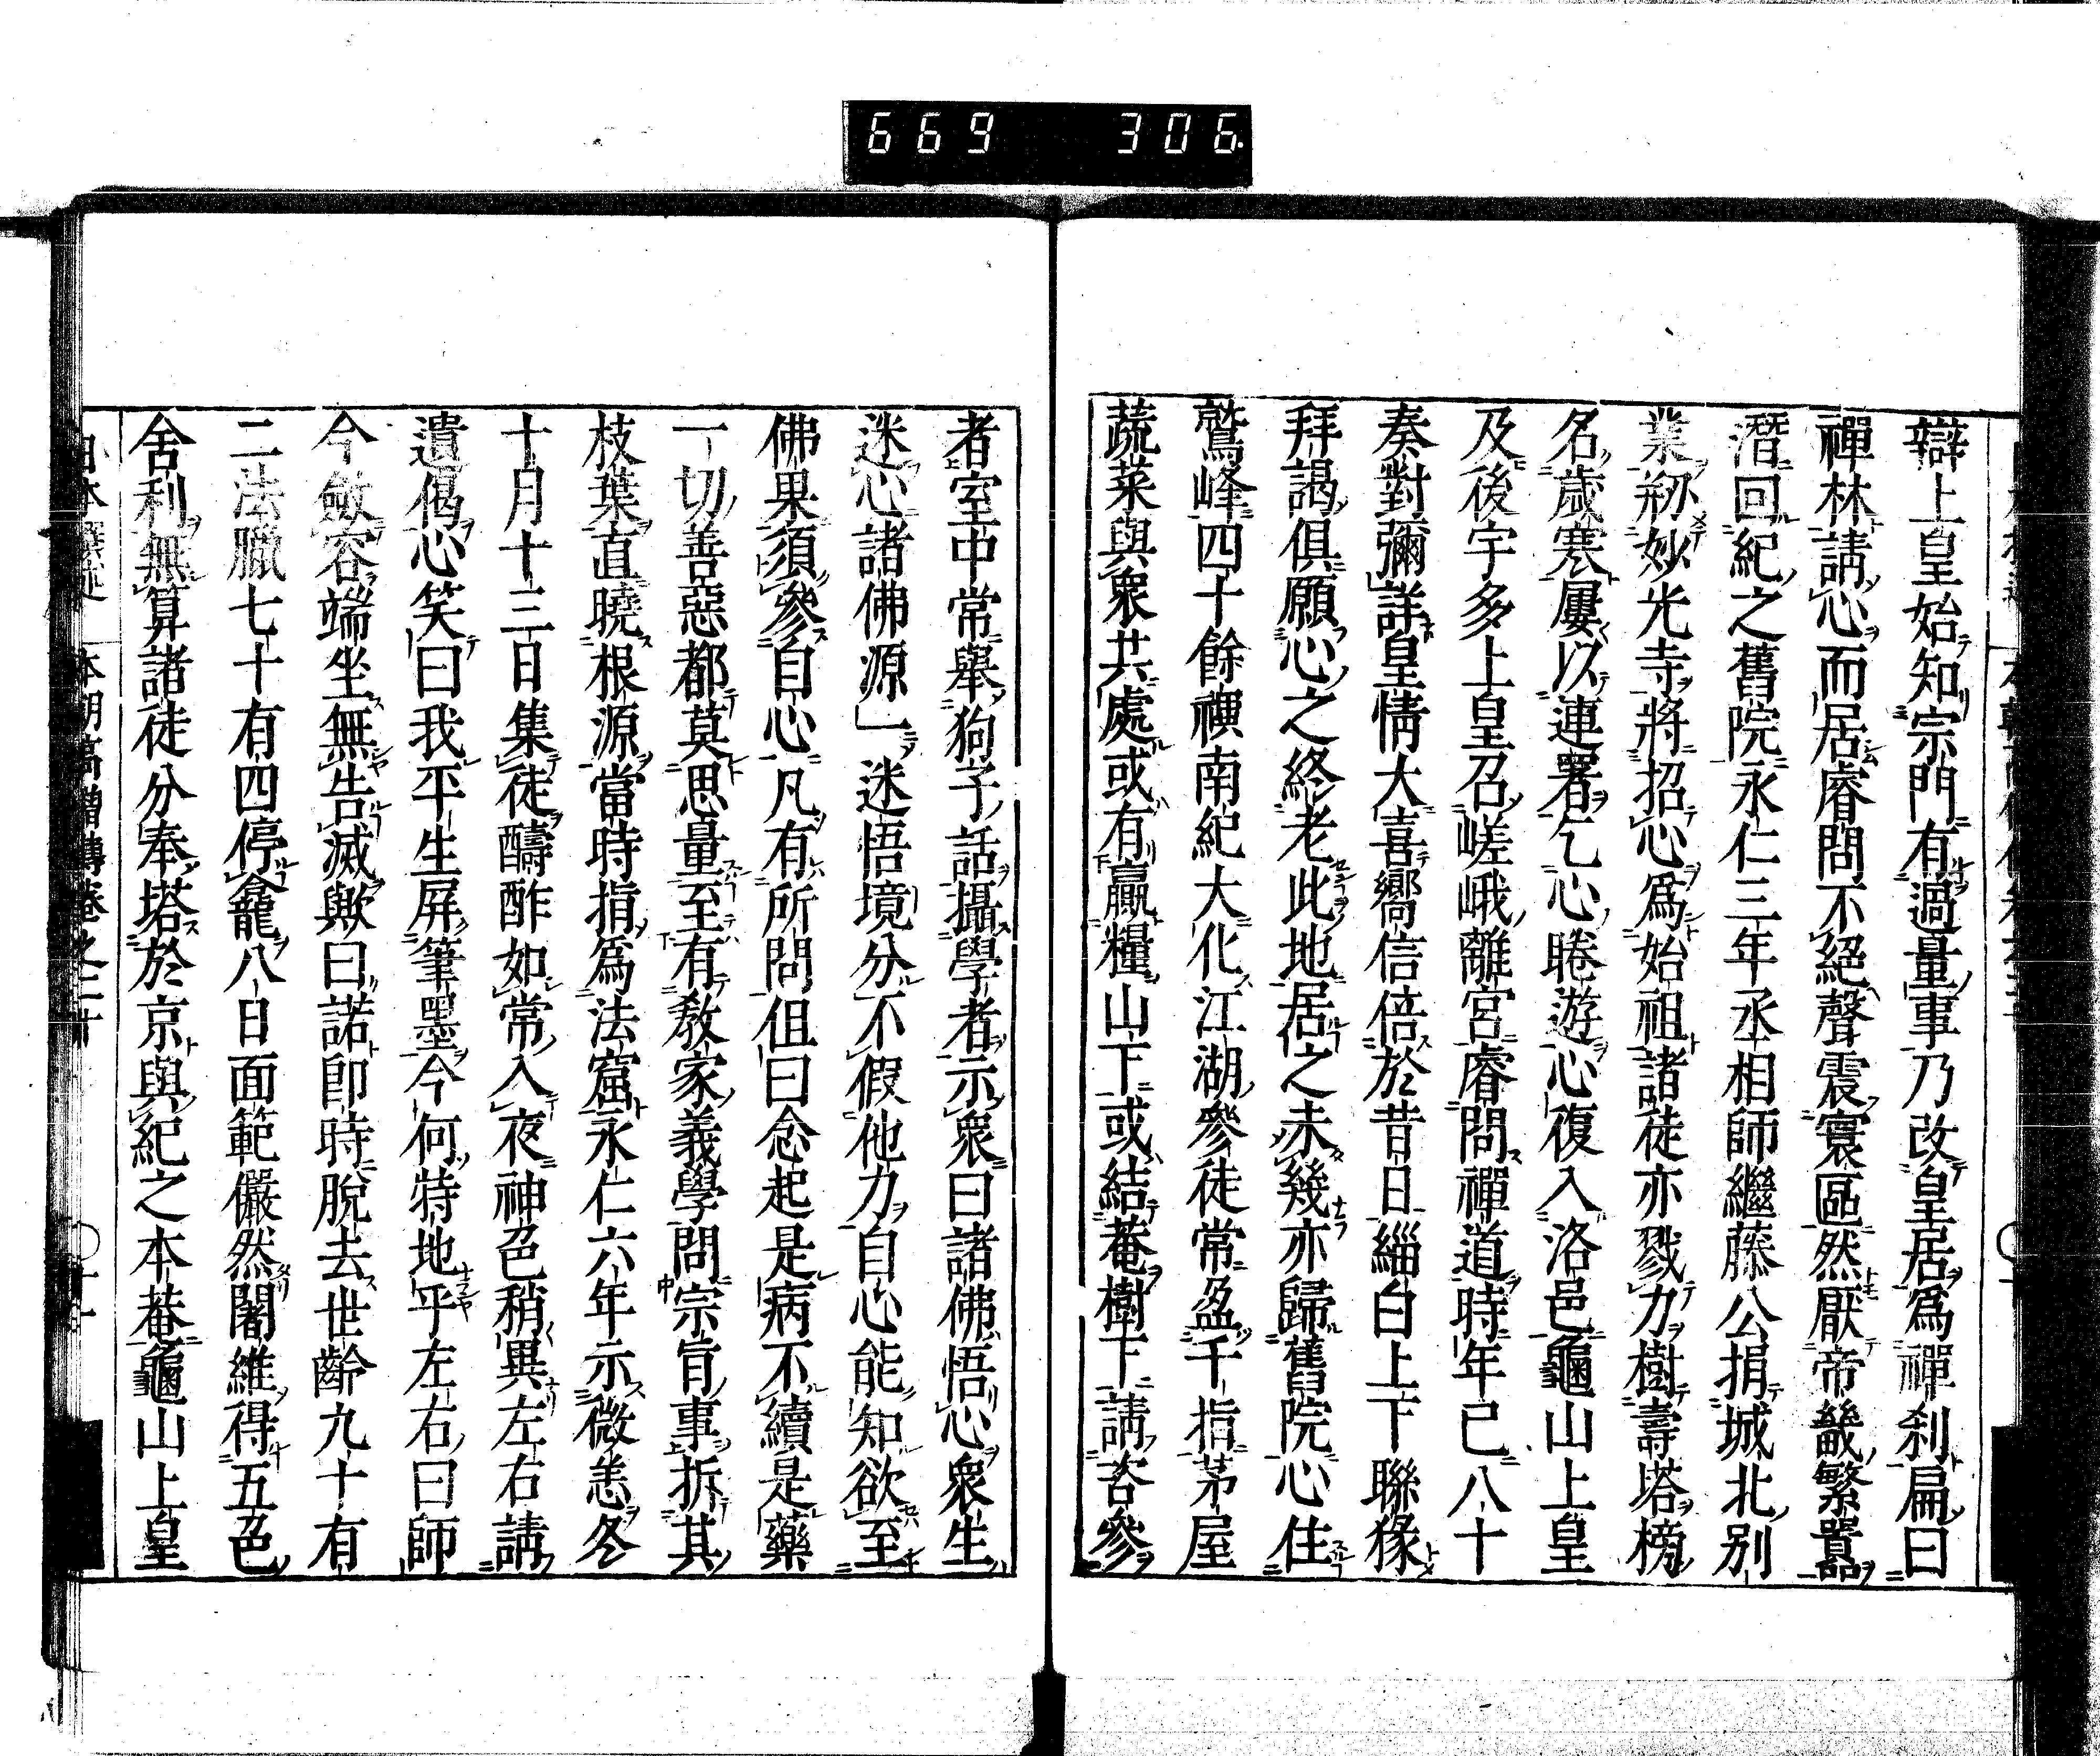 669 306
辯上皇始知宗門有過量事乃改皇居爲禪刹扁曰
禪林請心而居睿問不絕聲震寰區然厭帝畿繁囂
潛回紀之舊院永仁三年丞相師繼藤公捐城北別
業剏妙光寺將招心爲始祖諸徒亦戮力樹壽塔榜
名歲寒屢以連署乞心睠遊心復入洛邑龜山上皇
及後宇多上皇召嵯峨離宮睿問禪道時年已八十
奏對彌詳皇情大喜嚮信倍於昔日緇白上下聯緣
拜謁俱願心之終老此地居之未幾亦歸舊院心住
鷲峰四十餘禩南紀大化江湖參徒常盈千指茅屋
蔬菜與衆共處或有贏糧山下或結菴樹下請咨參
者室中常擧狗子話攝學者示衆曰諸佛悟心衆生
迷心諸佛源一迷悟境分不假他力自心能知欲至
佛果須參自心凡有所問但曰念起是病不續是藥
一切善惡都莫思量至有教家義學問宗旨事拆其
枝葉直曉根源當時指爲法窟永仁六年示微恙冬
十月十三日集徒醻酢如常入夜神色稍異左右請
遺偈心笑曰我平生屏筆墨今何特地乎左右曰師
今斂容端坐無告滅歟曰諾卽時脫去世齡九十有
二法臘七十有四停龕八日面範儼然闍維得五色
舍利無算諸徒分奉塔於京與紀之本菴龜山上皇
本朝高僧傳卷之二十